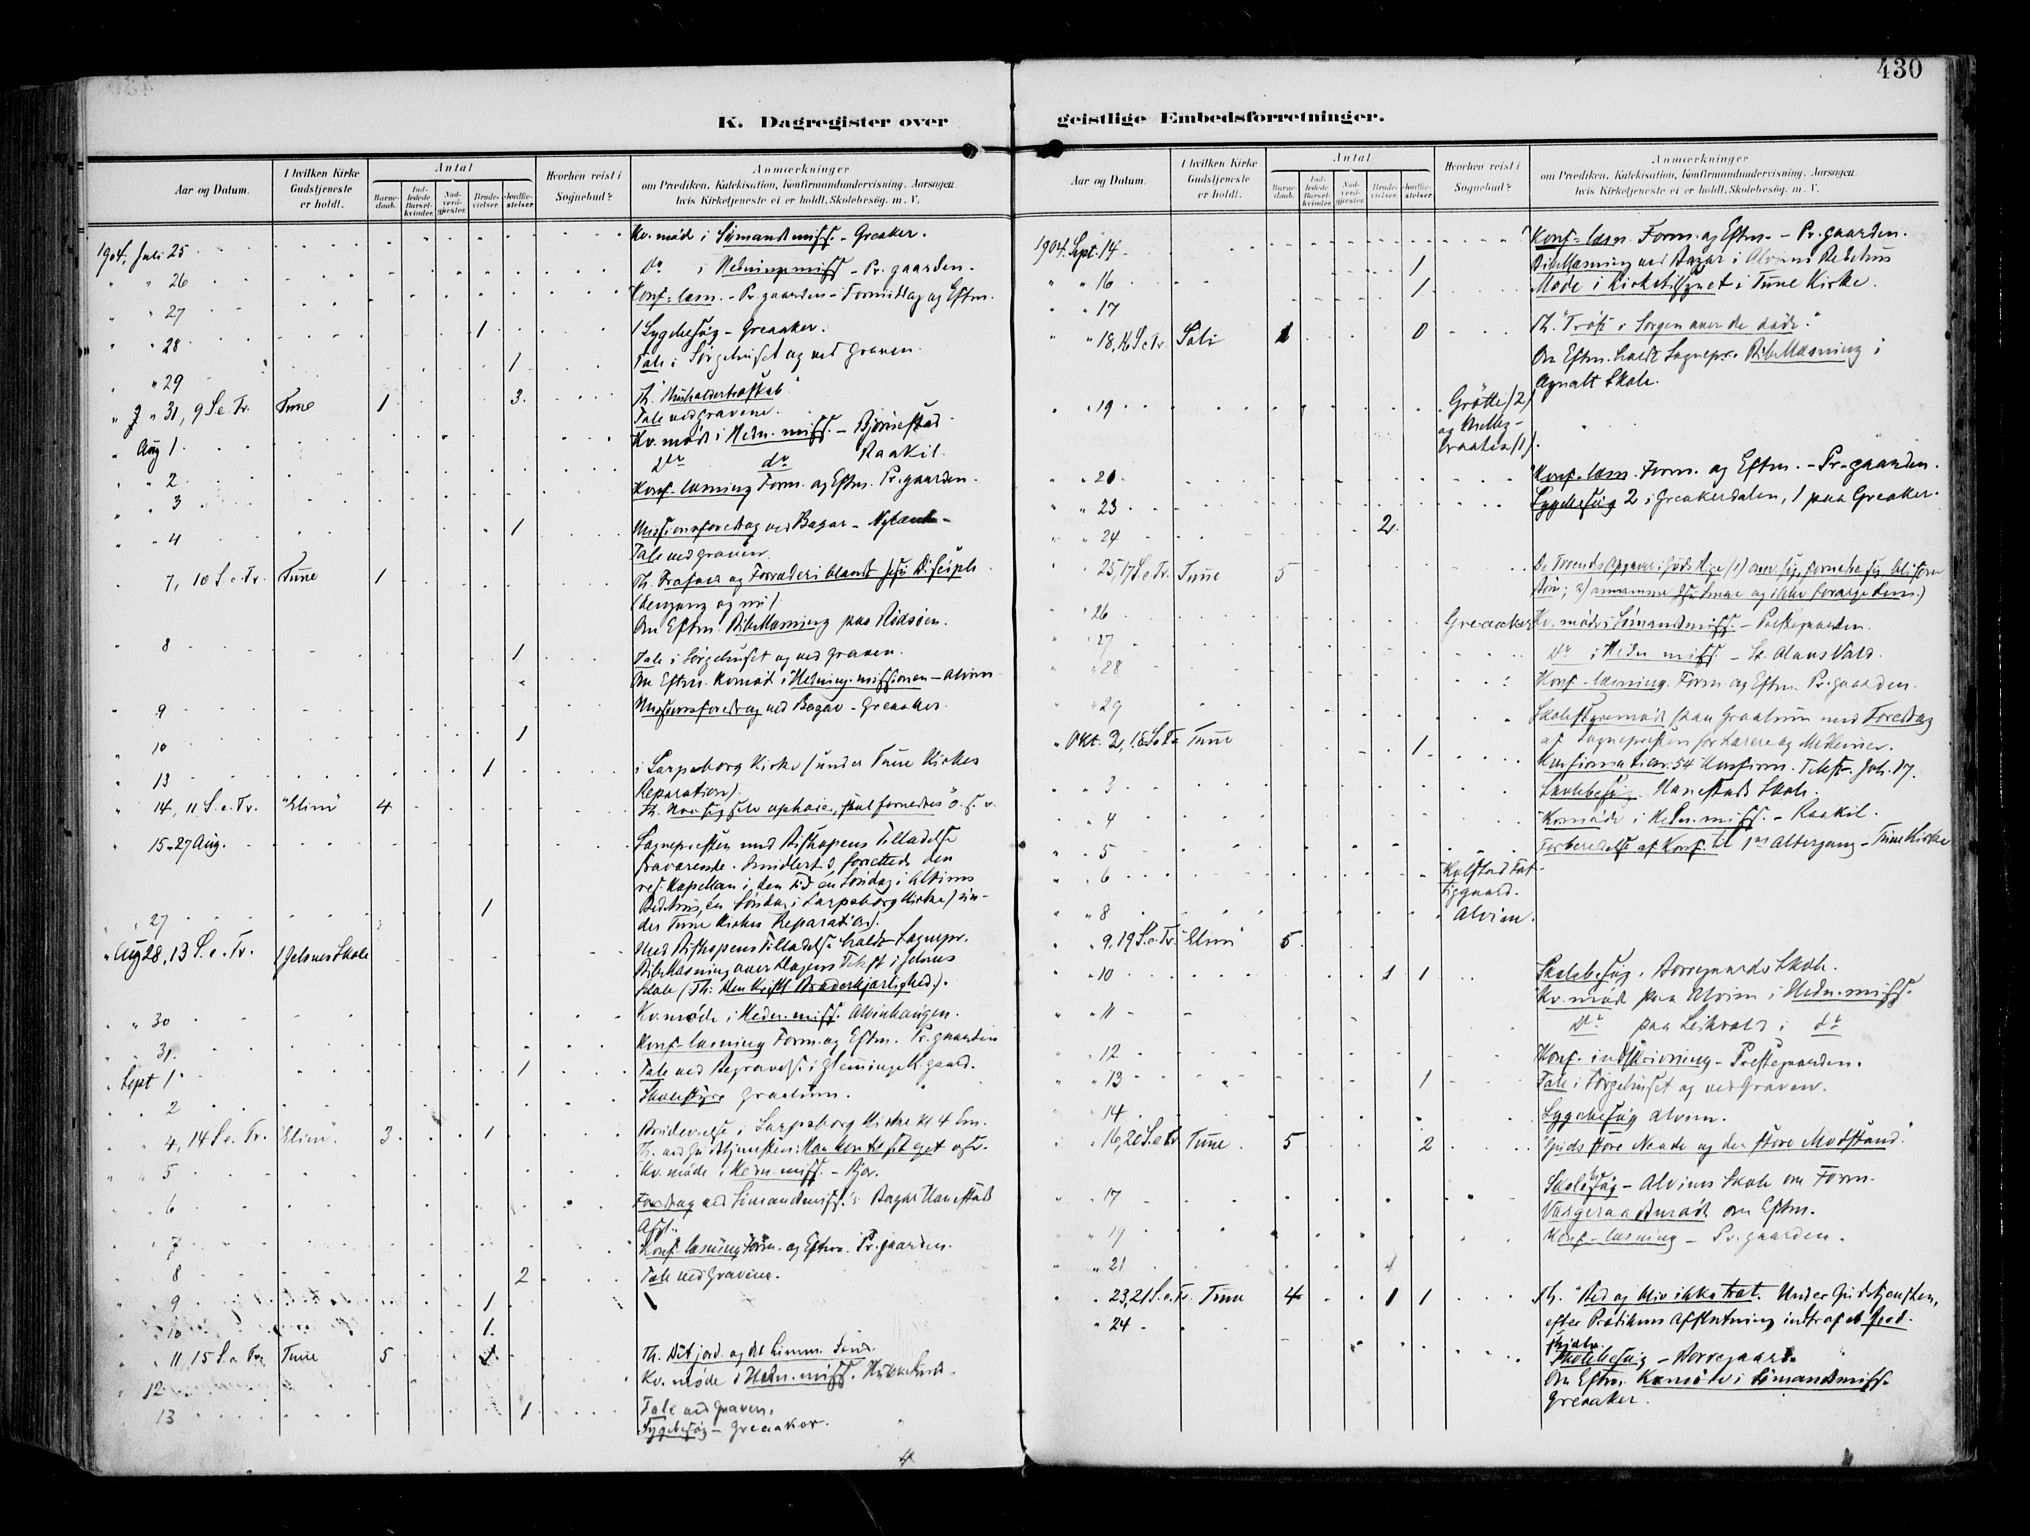 430
K. Dagregister over geistlige Embedsforretninger.
Aar og Datum.
I hvilken Kirke Gudstjeneste er holdt.
Antal
Barnedaab.
Indledede Barselkvinder.
Nadverdgjæster.
Brudevielser.
Jordfæstelser.
Hvorhen reist i Sognebud?
Anmærkninger
om Prædiken, Katekisation, Konfirmandundervisning, Aarsagen, hvis Kirketjeneste ei er holdt, Skolebesøg, m. V.
1904, Juli 25 Kv. møde i Sømandsmiss. - Greaker.
" " 26 Do i Hedningemiss - Pr. gaarden.
" " 27 Konf-læsn. - Pr. gaarden - Formiddag og Eftm.
" " 28 1 Sygebesøg - Greaaker.
" " 29 1 Tale i Sørgehuset og ved Graven.
" " 31, 9 S. e. Tr. Tune 1 3 Th. Husholderskab
Tale ved Gravene.
" Aug 1 Kv. møde i Hedn. miss. - Bjørnestad
" " 2 Do do Raakil.
" " 3 Konf-læsning Form. og Eftm. Pr. gaarden.
" " 4 1 Missionsforedrag ved Bazar - Nyland -
Tale ved Graven.
7, 10 S. e. Tr. Tune 1 Th. Frafald og Forræderi blandt Jesu Disciple
(dengang og nu).
Om Eftm. Bibellæsning paa Rødsøen.
8 1 Tale i Sørgehuset og ved Graven.
Om Eftm. Kv.møde i Hedning-missionen - Alvim
9 Missionsforedrag ved Bazar - Greaaker.
10 1
13 1 i Sarpsborg Kirke (under Tune Kirkes
Reparation).
14, 11 S. e. Tr. "Elim" 4 Th. Hvo sig selv ophøier, skal fornedres" o. s. v.
15-27 Aug. Sognepresten med Biskopens Tilladelse
fraværende. Imidlertid forrettede den
res. Kapellan i den Tid en Søndag i Alvims
Bedehus, en Søndag i Sarpsborg Kirke (un-
" 27 1 der Tune Kirkes Reparation).
" Aug 28, 13 S. e. Tr. Jelsnes Skole Med Biskopens Tilladelse holdt Sognepr.
Bibellæsning over Dagens Tekst i Jelsnes
Skole (Th: Den kristl. Broderkjærlighed).
" " 30 Kv. møde i Hedn. miss. Alvinhaugen.
" 31. Konf-læsning Form. og Eftm. Pr. gaarden
" Sept 1 1 Tale ved Begravelse i Glemminge K. gaard.
" " 2 Skolestyre Graalum.
" 4, 14 S. e. Tr. "Elim". 3 1 Brudevielse i Sarpsborg Kirke kl 4 Em.
Th. ved Gudstjenesten: Han kom til sit eget osv.
" " 5 Kv. møde i Hedn. miss. -
" 6 Foredrag ved Sømandsmiss.'s Bazar Hanestad
" 7 Konf-læsning Form. og Eftm. Pr. gaarden.
" 8 2 Tale ved Gravene.
" " 9 1
" " 10 1
" 11, 15 S. e. Tr. Tune 5 Th. Det jord. og det himm. Sind.
" 12 Kv. møde i Hedn. miss.
" 13 1 Tale ved Graven.
Sygebesøg - Greaaker.
4
1904 Sept. 14 Konf-læsn. Form. og Eftm. - Pr. gaarden.
" " 16 1 Bibellæsning ved Bazar i Alvims Bedehus
" " 17 1 Møde i Kirketilsynet i Tune Kirke.
" " 18, 16 S. e. Tr. Soli 1 0 Th. "Trøst i Sorgen over de døde."
Om Eftm. holdt Sognepr. Bibellæsning i
Agnalt Skole.
" " 19 Grøtte (2)
og
(1)
" " 21 Konf-læsn. Form. og Eftm. - Pr. gaarden.
" " 23 Sygebesøg 2 i Greakerdalen, 1 paa Greaker.
" " 24 2
" 25, 17 S. e. Tr. Tune 5 De Troendes Opgaver i Guds Rige (1) om sig, fornedre sig, bli som
Børn; 2) annamme smaa og ikke forarge dem.)
" 26 Greaaker Kv. møde i Sømandsmiss. - Prestegaarden.
" 27 Do i Hedn. miss. - St. Olavs Vold.
" 28 Konf-læsning. Form og Eftm. Pr. gaarden.
" 29 Skolestyremøde paa Graalum med Foredrag
" Okt. 2, 18 S. e. Tr. Tune 1 af Sognepresten for Lærere og Medlemmer.
Konfirmation. 54 Konfirm. Tekst- Joh. 17.
" 3 Skolebesøg. Hanestads Skole.
" " 4 Kv.møde i Hedn. miss. - Raakil.
" " 5 Forberedelse af Konf. til 1ste Altergang - Tune Kirke
" " 6 Kalstad Fat-
tiggaard.
" " 8 Alvim.
" " 9, 19 S. e. Tr. "Elim" 5
" " 10 1 1 Skolebesøg, Borregaards Skole.
" " 11 Kv. møde paa Alvim i Hedn. miss.
Do paa Leikvold i do
" " 12 Konf-indskrivning - Prestegaarden.
" " 13 1 Tale i Sørgehuset og ved Graven.
" " 14 Sygebesøg Alvim.
" " 16, 20 S. e. Tr. Tune. 5 2 "Guds store Naade og den store Modstand".
" " 17 Skolebesøg - Alvims Skole om Form.
Værgeraadsmøde om Eftm.
" " 19 Konf-læsning - Pr. gaarden.
" " 21
" " 23, 21 S. e. Tr. Tune 4 1 1 Th. "Bed og bliv ikke træt. Under Gudstjenesten,
" " 24 efter Prædikens Afslutning indtraf et Jord-
skjælv
Skolebesøg - Borregaard.
Om Eftm. Kv.møde i Sømandsmiss.
Greaaker.